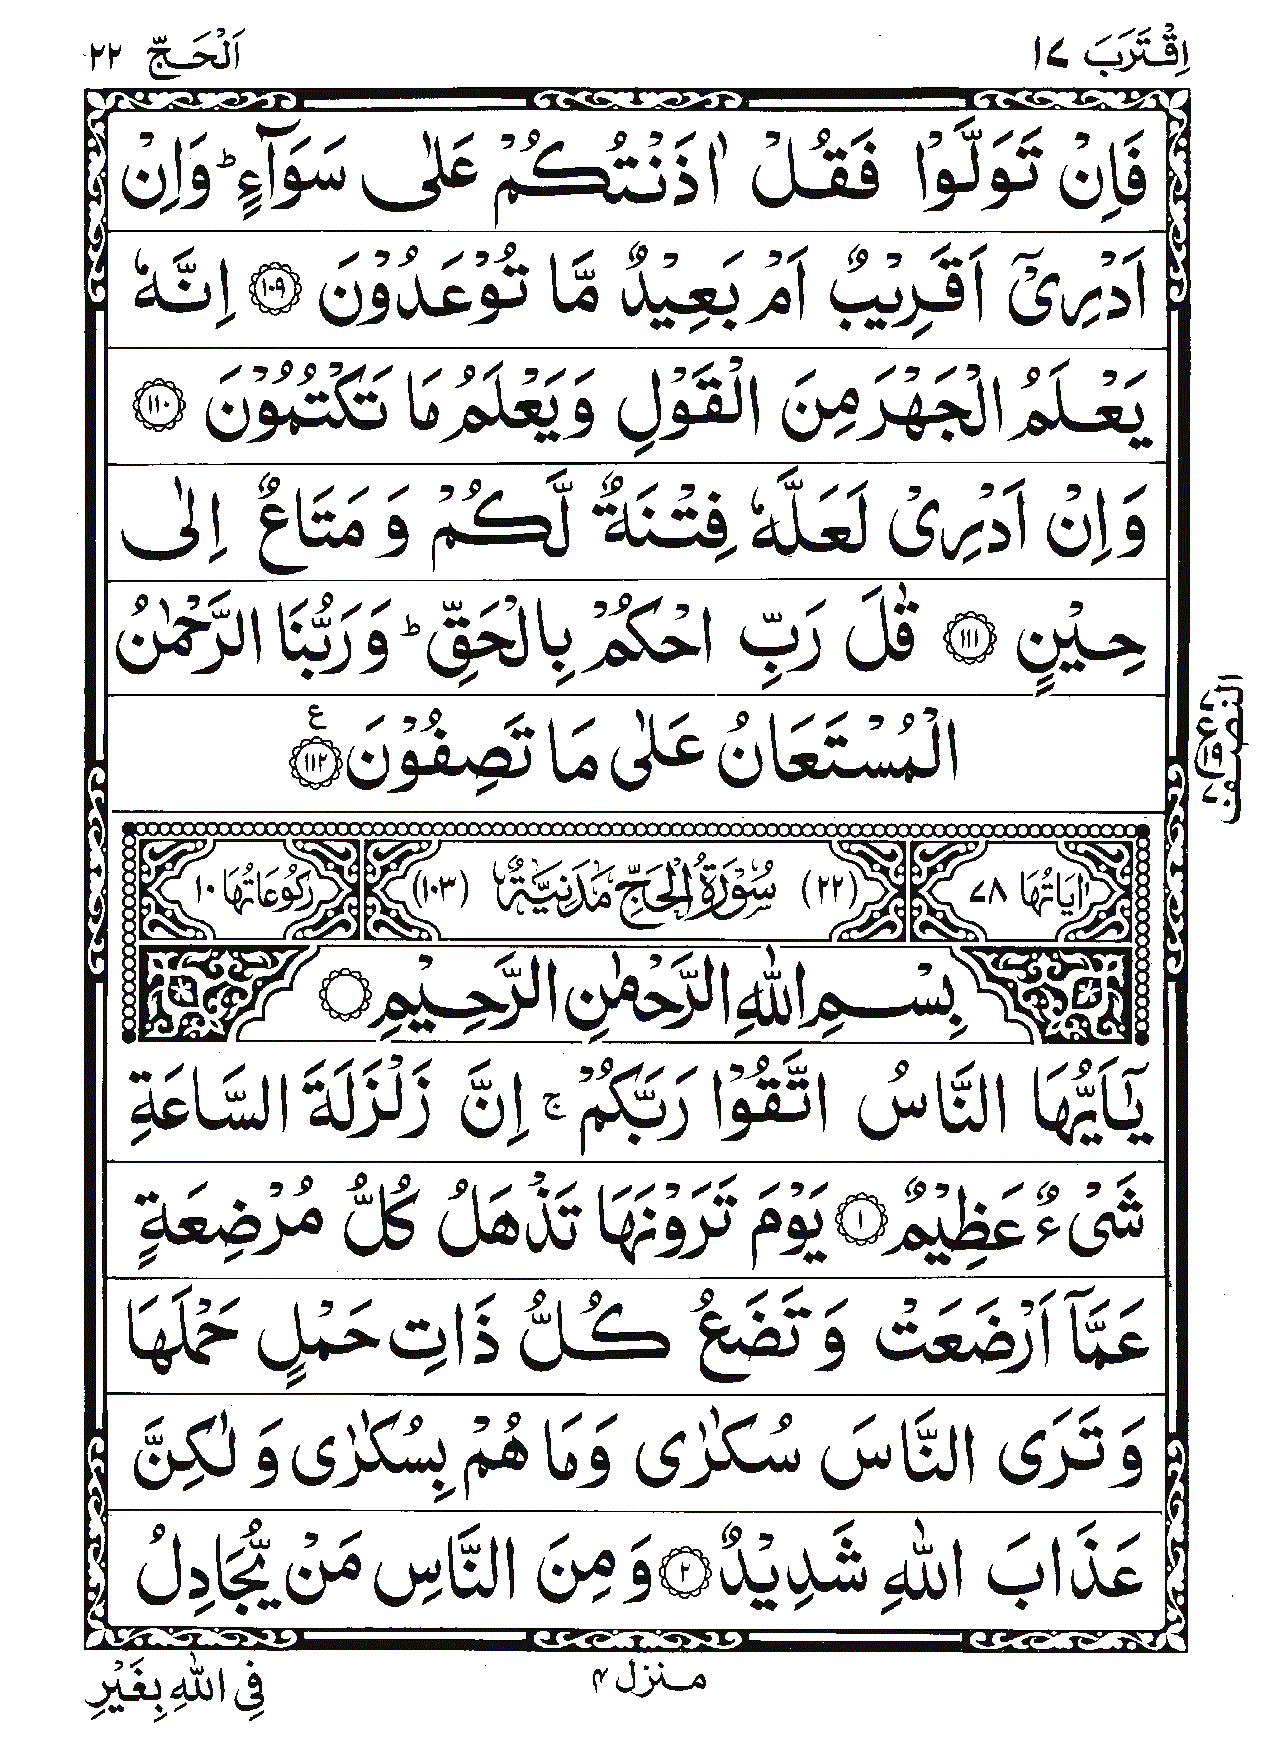 اِقْتَرَبَ ١٧
اَلْحَجّ ٢٢
فَاِنْ تَوَلَّوْا فَقُلْ اٰذَنْتُكُمْ عَلٰى سَوَآءٍ ؕ وَاِنْ
اَدْرِیْۤ اَقَرِیْبٌ اَمْ بَعِیْدٌ مَّا تُوْعَدُوْنَ ١٠٩ اِنَّهٗ
یَعْلَمُ الْجَهْرَ مِنَ الْقَوْلِ وَ یَعْلَمُ مَا تَكْتُمُوْنَ ١١٠
وَاِنْ اَدْرِیْ لَعَلَّهٗ فِتْنَةٌ لَّكُمْ وَ مَتَاعٌ اِلٰى
حِیْنٍ ١١١ قٰلَ رَبِّ احْكُمْ بِالْحَقِّ ؕ وَ رَبُّنَا الرَّحْمٰنُ
الْمُسْتَعَانُ عَلٰى مَا تَصِفُوْنَ ١١٢ ع
النصف
اٰیَاتُهَا ٧٨
(٢٢) سُوْرَةُ الْحَجِّ مَدَنِیَّةٌ (١٠٣)
رُكُوْعَاتُهَا ١٠
بِسْمِ اللّٰهِ الرَّحْمٰنِ الرَّحِیْمِ
یٰۤاَیُّهَا النَّاسُ اتَّقُوْا رَبَّكُمْ ۚ اِنَّ زَلْزَلَةَ السَّاعَةِ
شَیْءٌ عَظِیْمٌ ١ یَوْمَ تَرَوْنَهَا تَذْهَلُ كُلُّ مُرْضِعَةٍ
عَمَّاۤ اَرْضَعَتْ وَ تَضَعُ كُلُّ ذَاتِ حَمْلٍ حَمْلَهَا
وَ تَرَى النَّاسَ سُكٰرٰى وَمَا هُمْ بِسُكٰرٰى وَ لٰكِنَّ
عَذَابَ اللّٰهِ شَدِیْدٌ ٢ وَ مِنَ النَّاسِ مَنْ یُّجَادِلُ
منزل ۴
فِی اللّٰهِ بِغَیْرِ